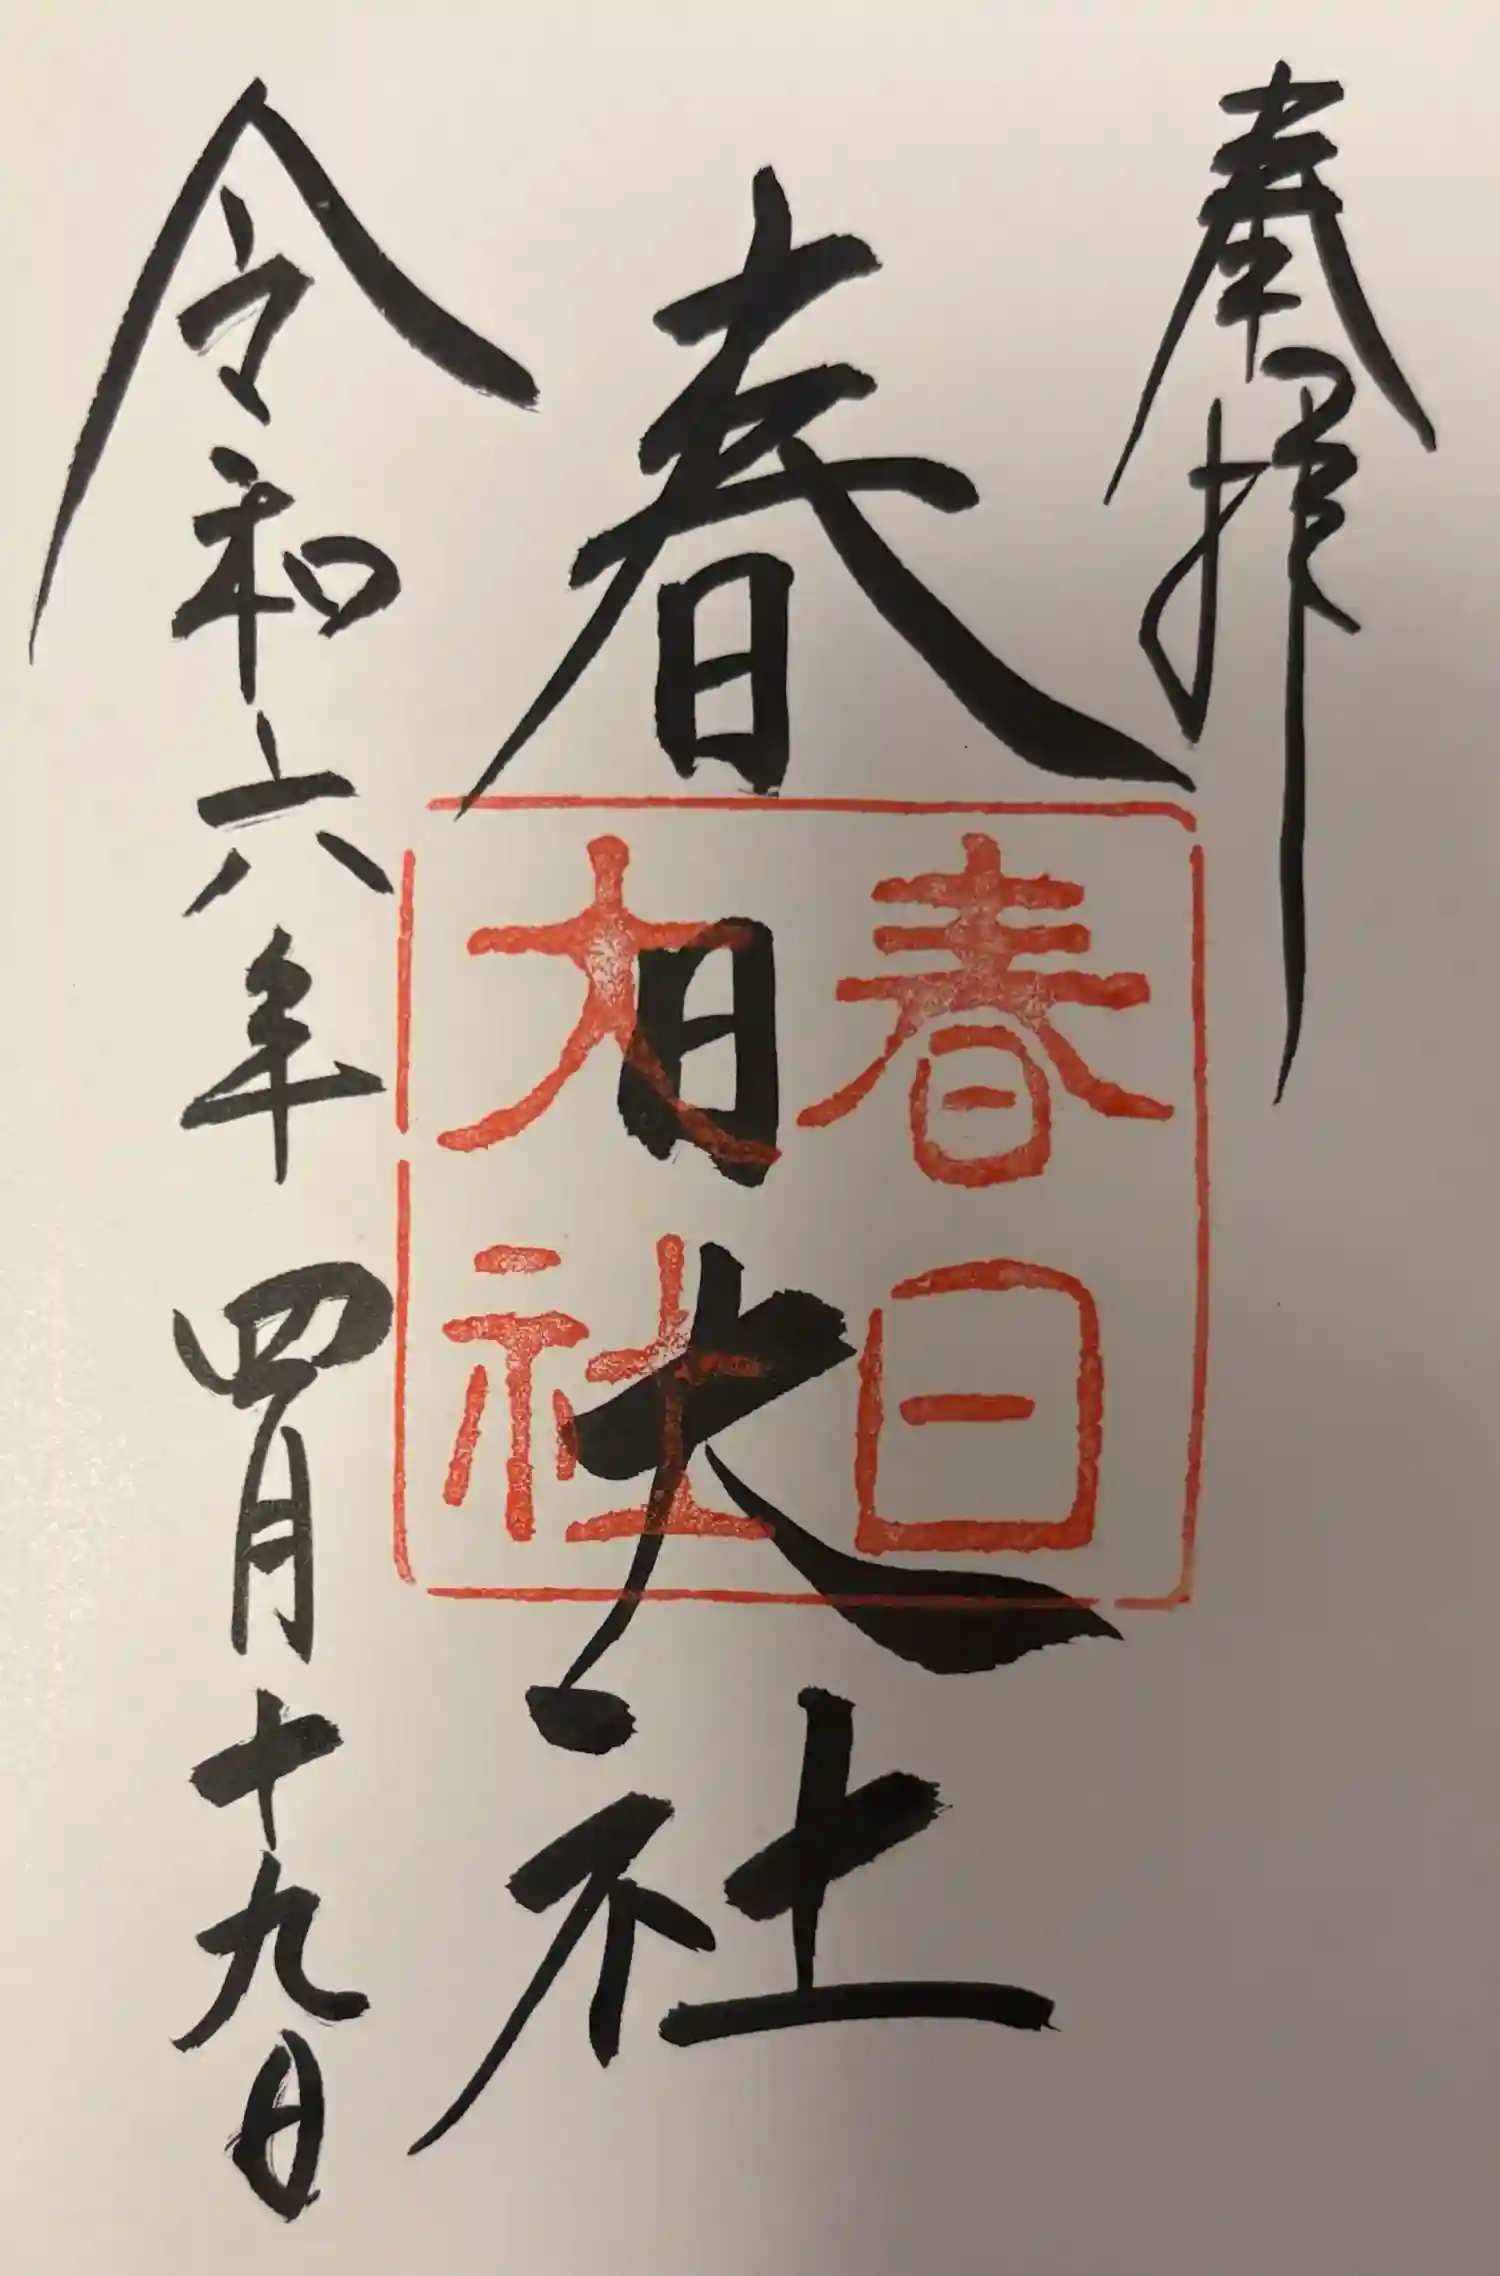 奉拝
春日大社
春日
大社
令和六年四月十九日